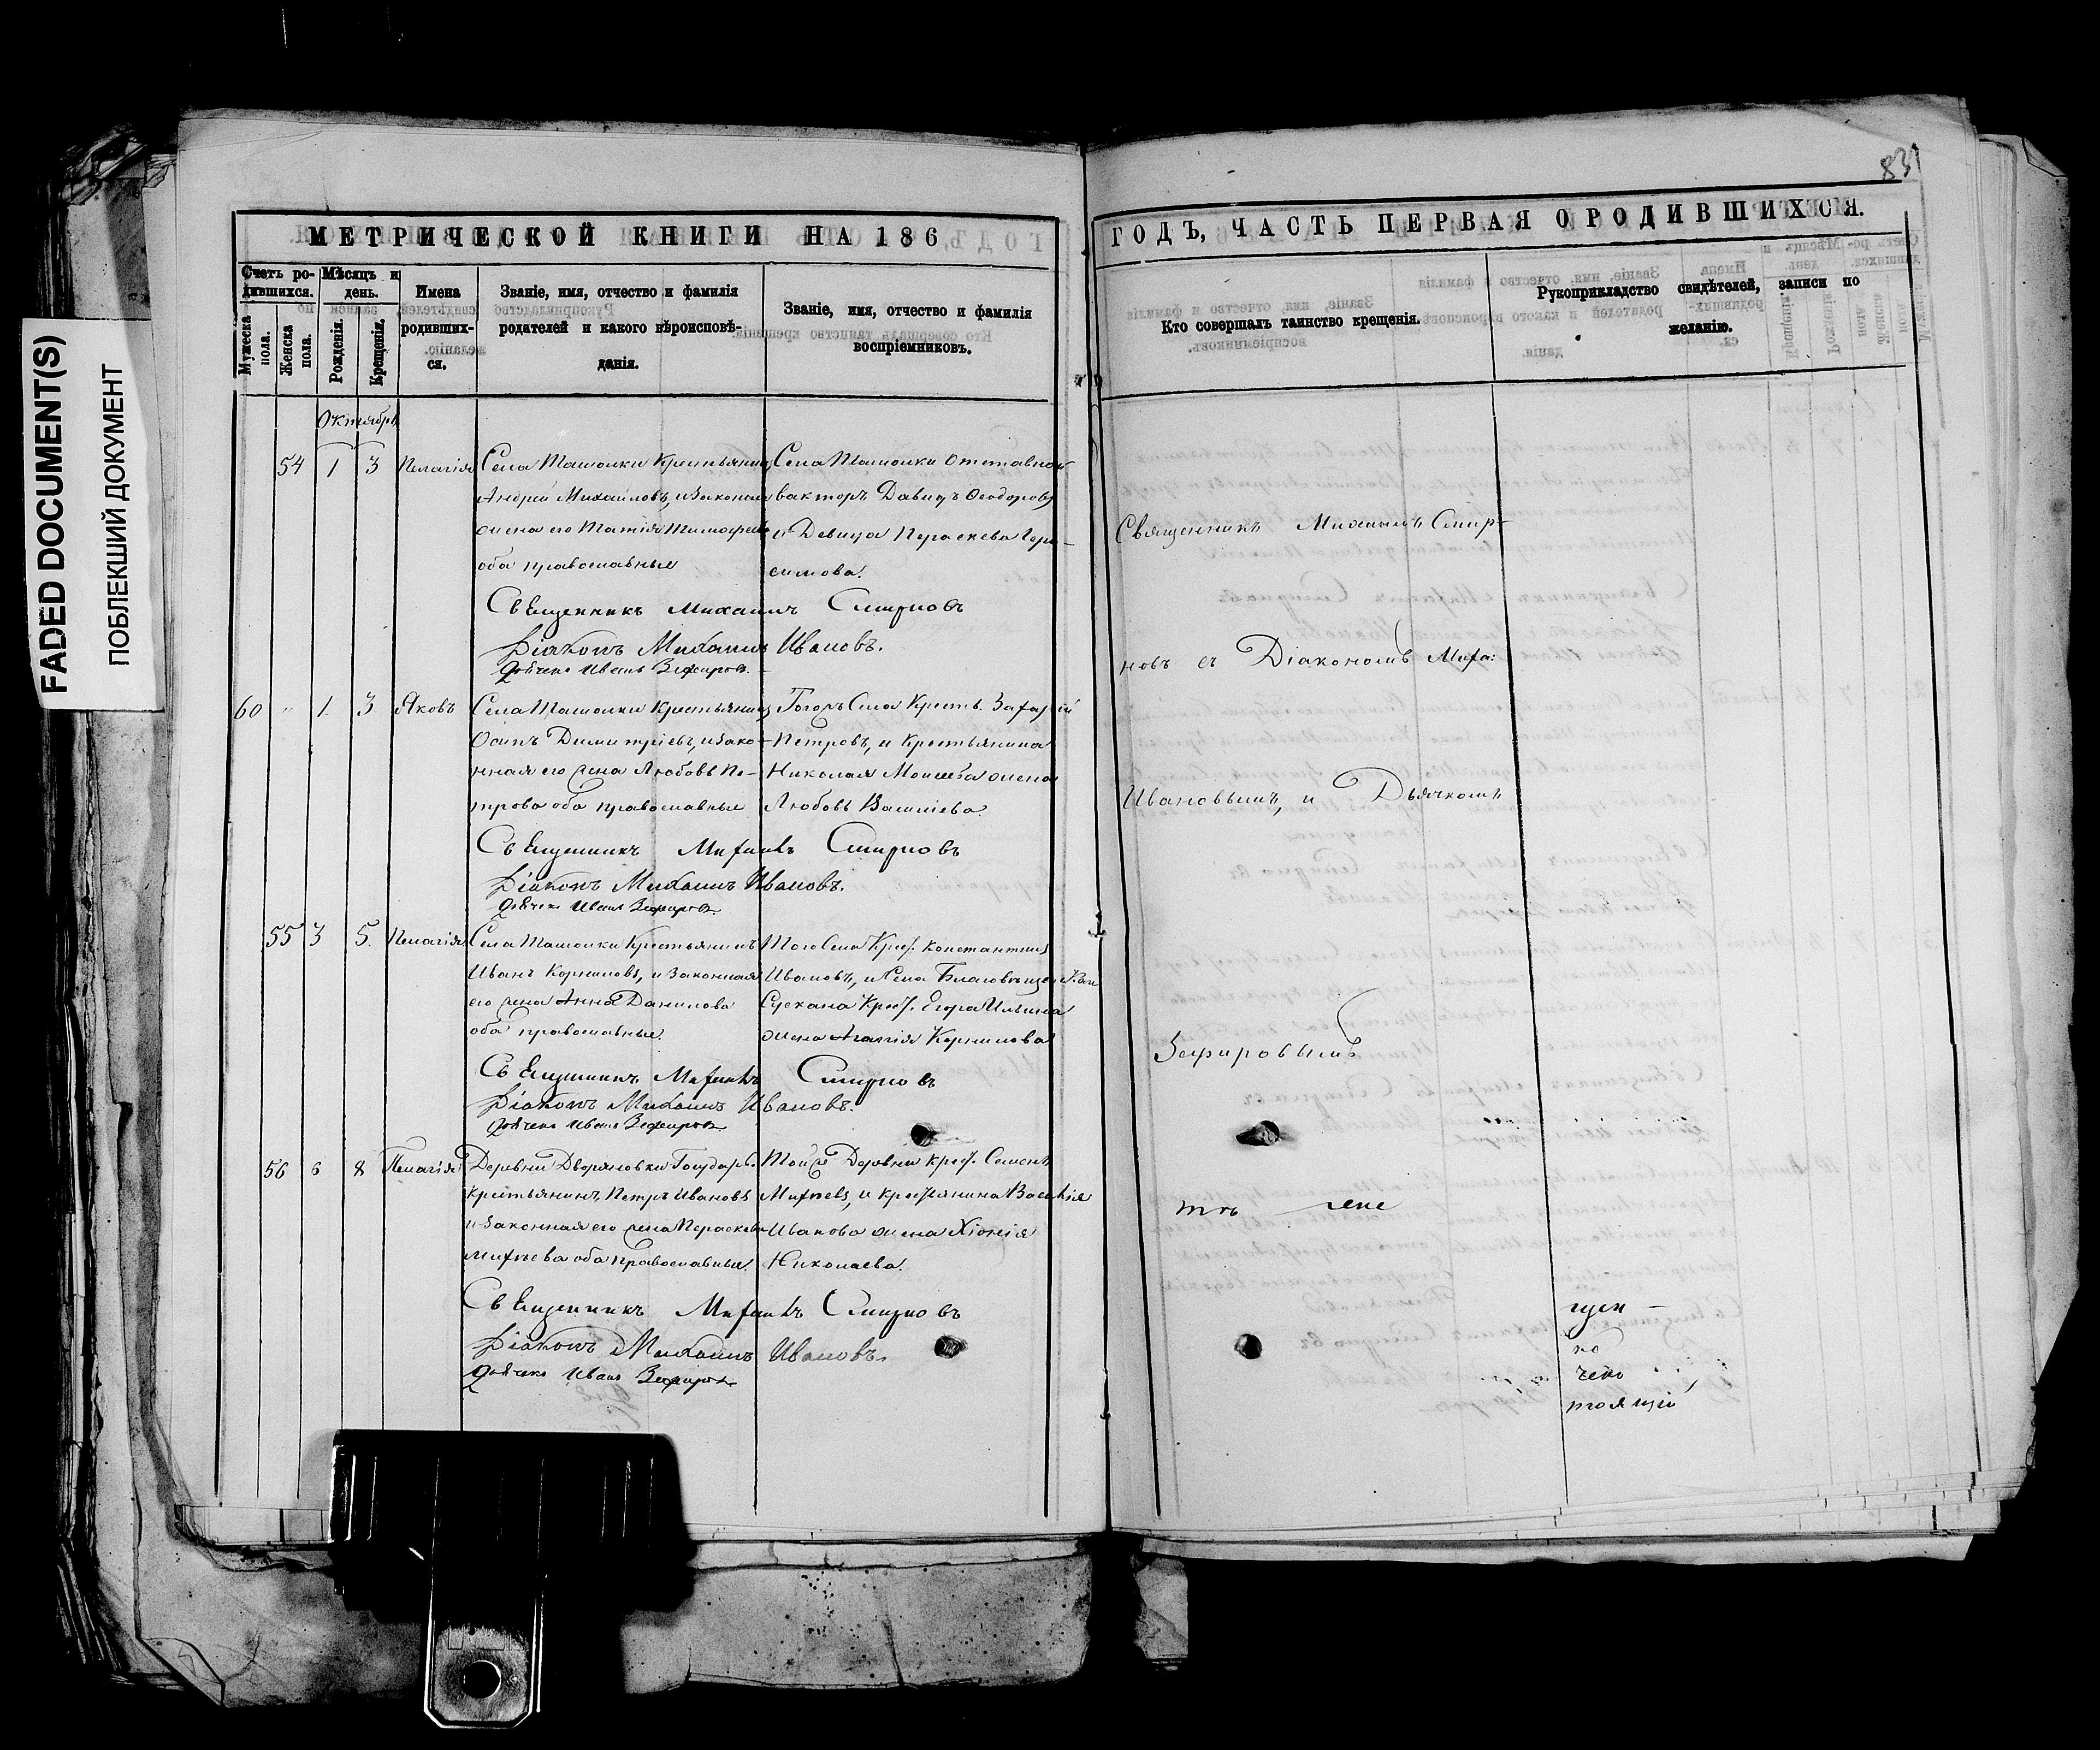 FADED DOCUMENT(S)
ПОБЛЕКШИЙ ДОКУМЕНТ
83
МЕТРИЧЕСКОЙ КНИГИ НА 186
Счетъ ро-
дившихся.
Мѣсяцъ и
день.
Мужеска
пола.
Женска
пола.
Рожденія.
Крещенія.
Имена
родивших-
ся.
Званіе, имя, отчество и фамилія
родителей и какого вѣроисповѣ-
данія.
Званіе, имя, отчество и фамилія
воспріемниковъ.
Октябрь
54 1 3 Пелагія
Села Ташолки Крестьянинъ
Андрей Михайловъ, и Законная
жена его
оба православные
Села Ташолки Отставной
Давидъ Ѳеодоровъ
и Девица Параскева Гера-
симова.
Священникъ Михаилъ Смирновъ
Діаконъ Михаилъ Ивановъ.
Дьячекъ Иванъ Зефировъ.
60 " 1 3 Яковъ
Села Ташолки Крестьянинъ
Осипъ Димитріевъ, и Зако-
нная его жена Любовь Пе-
трова оба православные
Тогожъ Села Крестъ. Захарій
Петровъ, и Крестьянина
Николая Моисеева жена
Любовь Василіева.
Священникъ Михаилъ Смирновъ
Діаконъ Михаилъ Ивановъ.
Дьячекъ Иванъ Зефировъ.
55 3 5. Пелагія
Села Ташолки Крестьянинъ
Иванъ Корниловъ, и Законная
его жена Анна Данилова
оба православные.
Того Села Крес. Константинъ
Ивановъ, и Села
Сускана Крес. Егора Ильина
жена Агапія Корнилова
Священникъ Михаилъ Смирновъ
Діаконъ Михаилъ Ивановъ.
Дьячекъ Иванъ Зефировъ
56 6 8 Пелагія
Деревни Дворяновки Государ.
Крестьянинъ Петръ Ивановъ
и Законная его жена Параскева
Михѣева оба православные.
Той же Деревни крес. Семенъ
Михѣевъ, и крестьянина Василія
Иванова жена Хіонія
Николаева.
Священникъ Михаилъ Смирновъ
Діаконъ Михаилъ Ивановъ.
Дьячекъ Иванъ Зефировъ
ГОДЪ, ЧАСТЬ ПЕРВАЯ О РОДИВШИХСЯ.
Кто совершалъ таинство крещенія.
Рукоприкладство свидѣтелей, записи по
желанію.
Священникъ Михаилъ Смир-
новъ съ Діакономъ Миха:
Ивановымъ, и Дьячкомъ
Зефировымъ